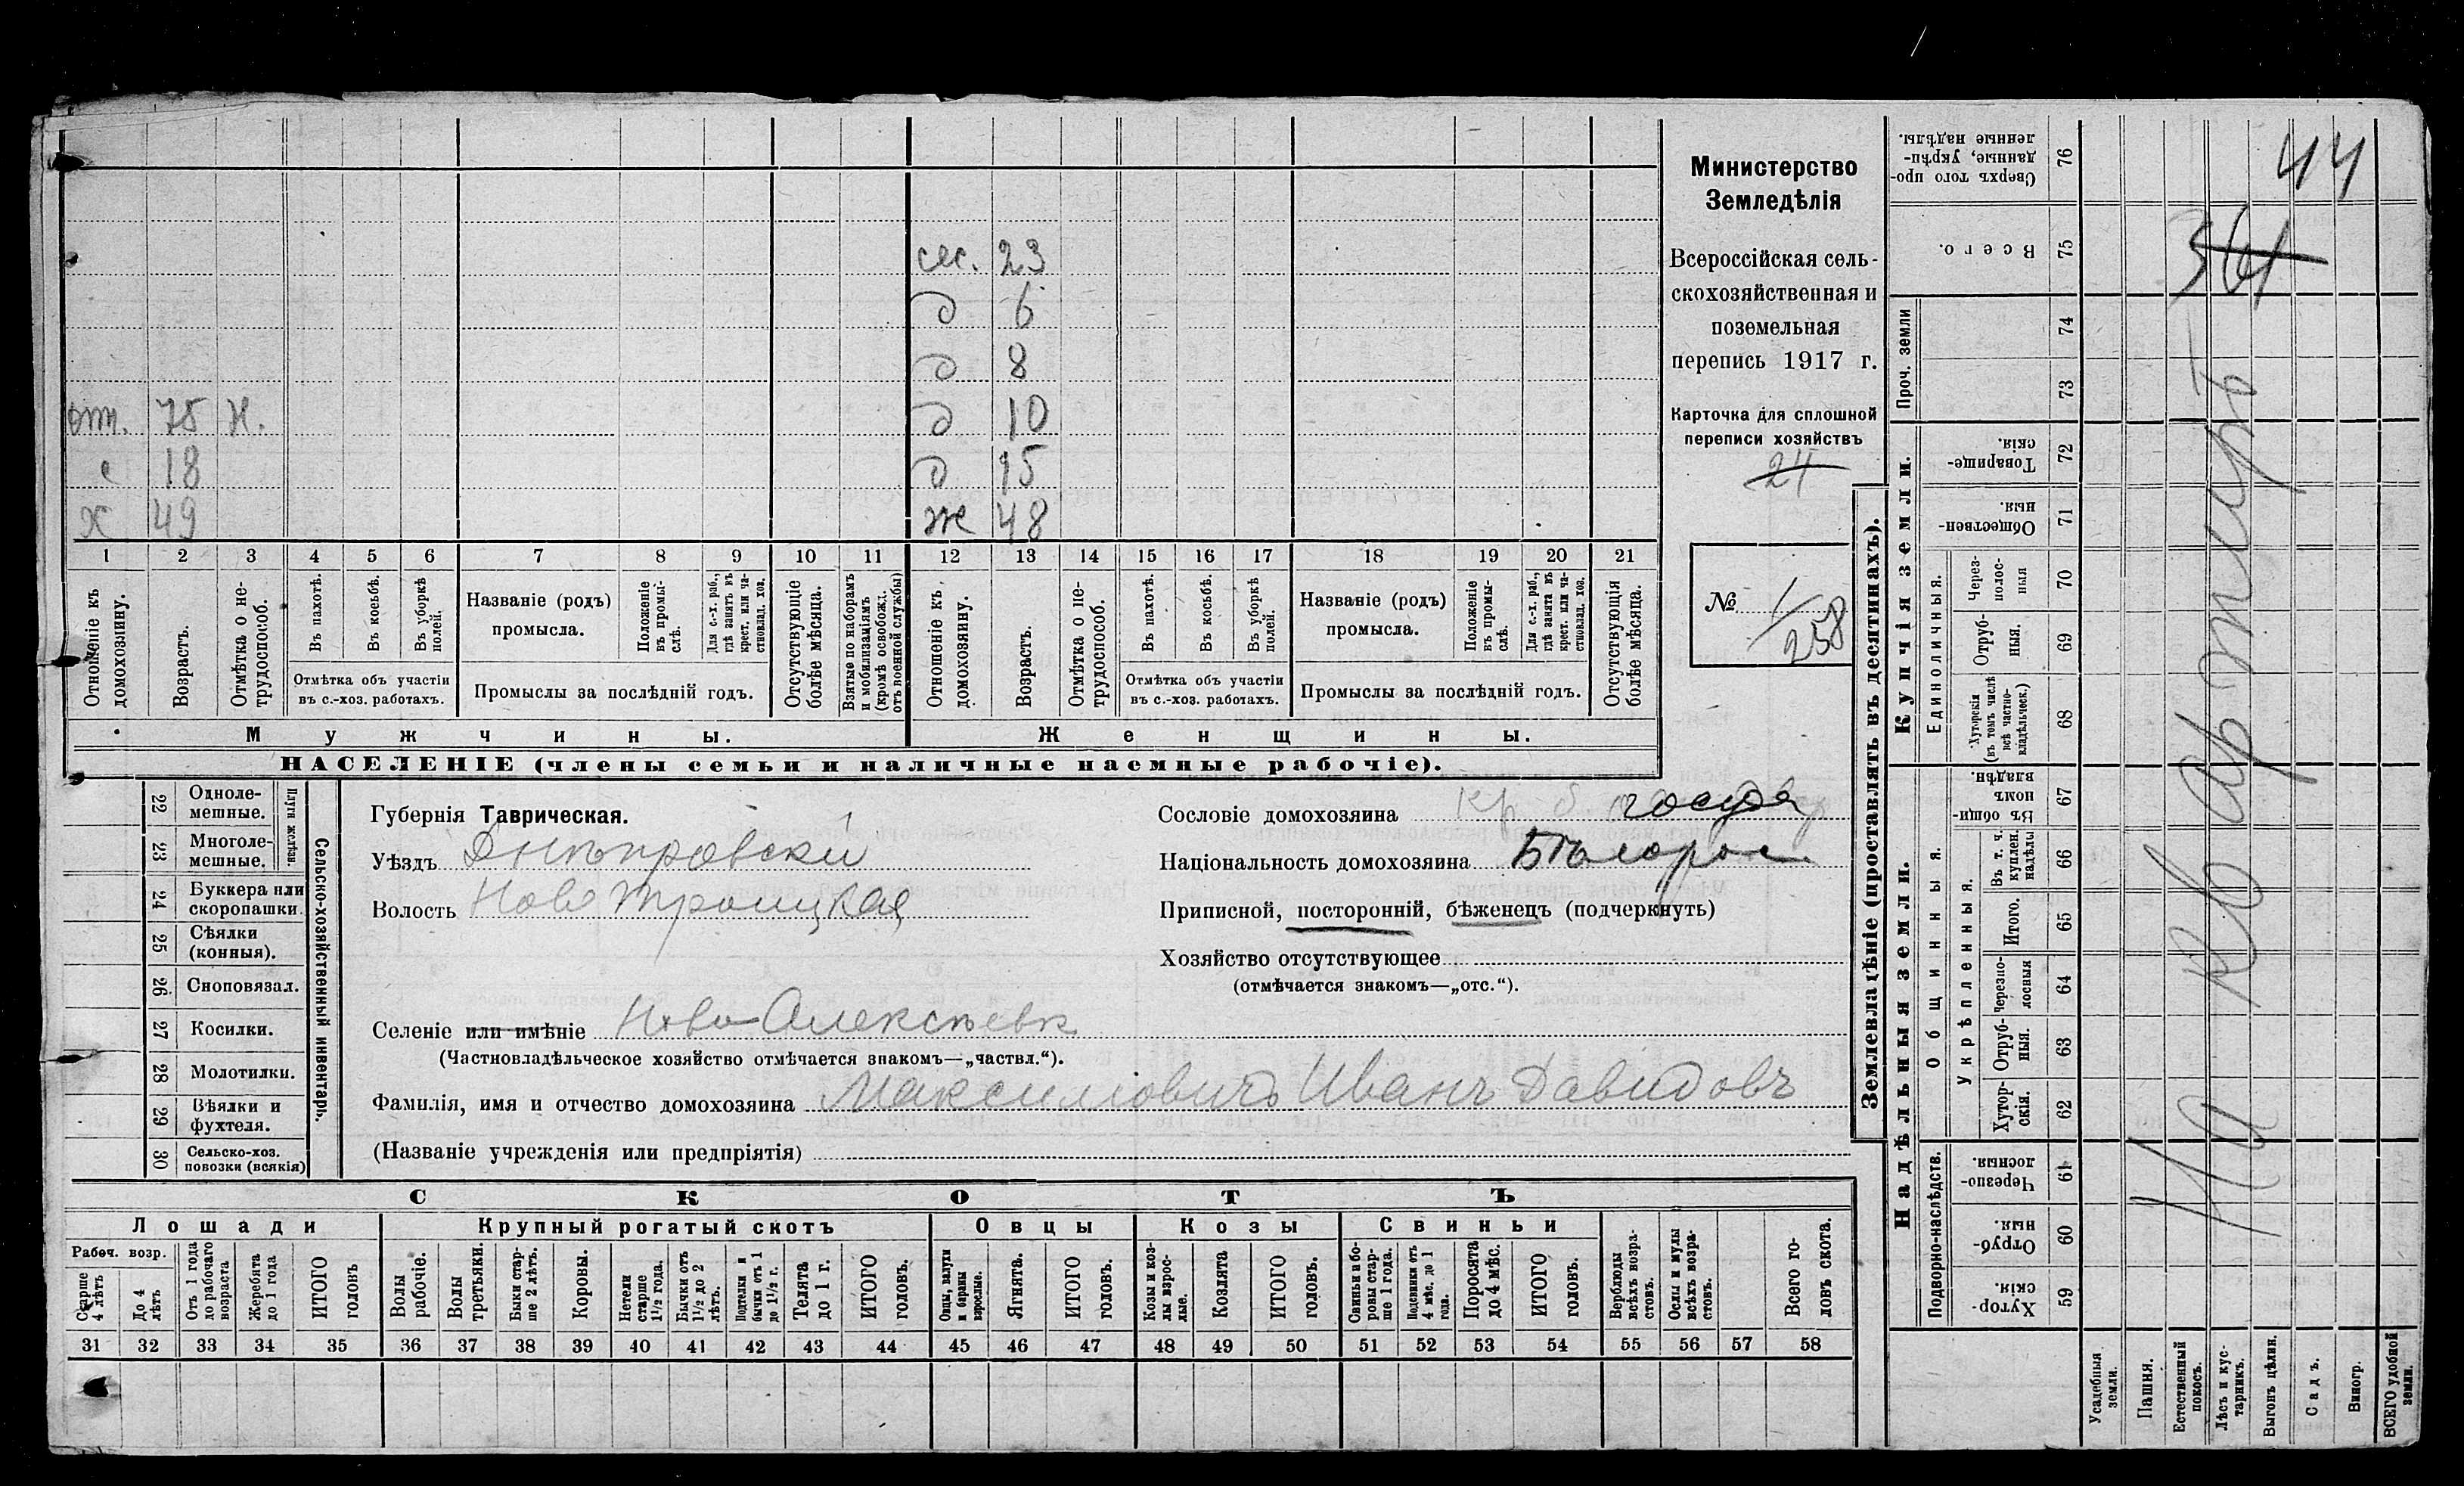 44
364
сес. 23
д 6
д 8
д 10
от. 75 н.
д 15
с 18
ж 48
х 49
1 2 3 4 5 6 7 8 9 10 11 12 13 14 15 16 17 18 19 20 21
Отношеніе къ домохозяину.
Возрастъ.
Отмѣтка о не-трудоспособ.
Въ пахотѣ.
Въ косьбѣ.
Въ уборкѣ полей.
Отмѣтка объ участіи
въ с.-хоз. работахъ.
Названіе (родъ)
промысла.
Положеніе въ промы-слѣ.
Для с.-х. раб., гдѣ занятъ въ крест. или ча-стновлад. хоз.
Промыслы за послѣдній годъ.
Отсутствующіе болѣе мѣсяца.
Взятые по наборамъ и мобилизаціямъ (кромѣ освобожд. отъ военной службы)
Отношеніе къ домохозяину.
Возрастъ.
Отмѣтка о не-трудоспособ.
Въ пахотѣ.
Въ косьбѣ.
Въ уборкѣ полей.
Отмѣтка объ участіи
въ с.-хоз. работахъ.
Названіе (родъ)
промысла.
Положеніе въ промы-слѣ.
Для с.-х. раб., гдѣ занята въ крест. или ча-стновлад. хоз.
Промыслы за послѣдній годъ.
Отсутствующія болѣе мѣсяца.
Мужчины.
Женщины.
НАСЕЛЕНІЕ (члены семьи и наличные наемные рабочіе).
Министерство
Земледѣлія
Всероссійская сель-
скохозяйственная и
поземельная
перепись 1917 г.
Карточка для сплошной
переписи хозяйствъ
24
№ 1/258
Сельско-хозяйственный инвентарь.
Плуги желѣзн.
22 Одноле-мешные.
23 Многоле-мешные.
24 Буккера или скоропашки.
25 Сѣялки (конныя).
26 Сноповязал.
27 Косилки.
28 Молотилки.
29 Вѣялки и фухтеля.
30 Сельско-хоз. повозки (всякія)
Губернія Таврическая.
Уѣздъ Днѣпровскі
Волость Ново Троицкая
Селеніе или имѣніе Ново-Алексѣевк
(Частновладѣльческое хозяйство отмѣчается знакомъ—„частвл.“).
Фамилія, имя и отчество домохозяина Максимовичъ Иванъ Давидовъ
(Названіе учрежденія или предпріятія)
Сословіе домохозяина кр. б. госуд
Національность домохозяина Бѣлорос
Приписной, посторонній, бѣженецъ (подчеркнуть)
Хозяйство отсутствующее
(отмѣчается знакомъ—„отс.“).
СКОТЪ
Лошади
Крупный рогатый скотъ
Овцы
Козы
Свиньи
Рабоч. возр.
Старше 4 лѣтъ
До 4 лѣтъ
Отъ 1 года до рабочаго возраста
Жеребята до 1 года
ИТОГО головъ
Волы рабочіе.
Волы третьяки.
Быки стар-ше 2 лѣтъ.
Коровы.
Нетели старше 1½ года.
Бычки отъ 1½ до 2 лѣтъ.
Подтелки и бычки отъ 1 до 1½ г.
Телята до 1 г.
ИТОГО головъ.
Овцы, валухи и бараны взрослые.
Ягнята.
ИТОГО головъ.
Козы и коз-лы взрос-лые.
Козлята
ИТОГО головъ.
Свиньи и бо-ровы стар-ше 1 года.
Подсвинки отъ 4 мѣс. до 1 года.
Поросята до 4 мѣс.
ИТОГО головъ.
Верблюды всѣхъ возра-стовъ.
Ослы и мулы всѣхъ возра-стовъ.
Всего го-ловъ скота.
31 32 33 34 35 36 37 38 39 40 41 42 43 44 45 46 47 48 49 50 51 52 53 54 55 56 57 58
Землевладѣніе (проставлять въ десятинахъ).
Надѣльныя земли.
Купчія земли.
Проч. земли
Подворно-наслѣдств.
Общинныя.
Укрѣпленныя.
Единоличныя.
59 Хутор-скія.
60 Отруб-ныя.
61 Черезпо-лосныя.
62 Хутор-скія.
63 Отруб-ныя.
64 Черезпо-лосныя
65 Итого.
66 Въ т. ч. куплен. надѣлы
67 Въ общи-номъ владѣн.
68 Хуторскія (въ томъ числѣ всѣ частно-владѣльческ.)
69 Отруб-ныя.
70 Через-полос-ныя
71 Обществен-ныя.
72 Товарище-скія.
73
74
75 Всего.
76 Сверхъ того про-данные, укрѣп-ленные надѣлы.
Усадебныя земли.
Пашня.
Естественный покосъ.
Лѣсъ и кус-тарникъ.
Выгонъ цѣлин.
Садъ.
Виногр.
ВСЕГО удобной земли.
На квартирѣ